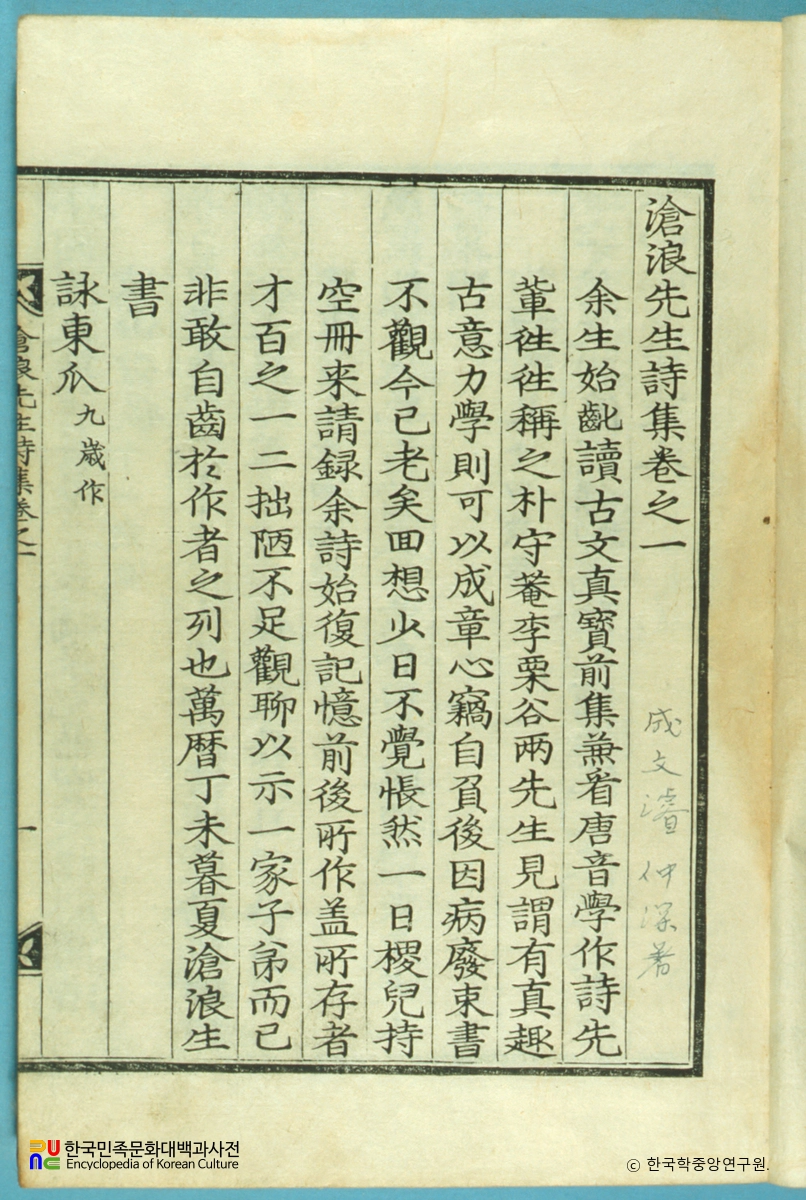 滄浪先生詩集卷之一
成文濬 仲深著
余生始齔讀古文真寶前集兼看唐音學作詩先
輩徃徃稱之朴守菴李栗谷兩先生見謂有真趣
古意力學則可以成章心竊自負後因病廢束書
不觀今已老矣回想少日不覺悵然一日㮨兒持
空冊来請録余詩始復記憶前後所作盖所存者
才百之一二拙陋不足觀聊以示一家子弟而已
非敢自齒於作者之列也萬曆丁未暮夏滄浪生
書
詠東瓜 九歲作
滄浪先生詩集卷之一
一
한국민족문화대백과사전
Encyclopedia of Korean Culture
ⓒ 한국학중앙연구원.